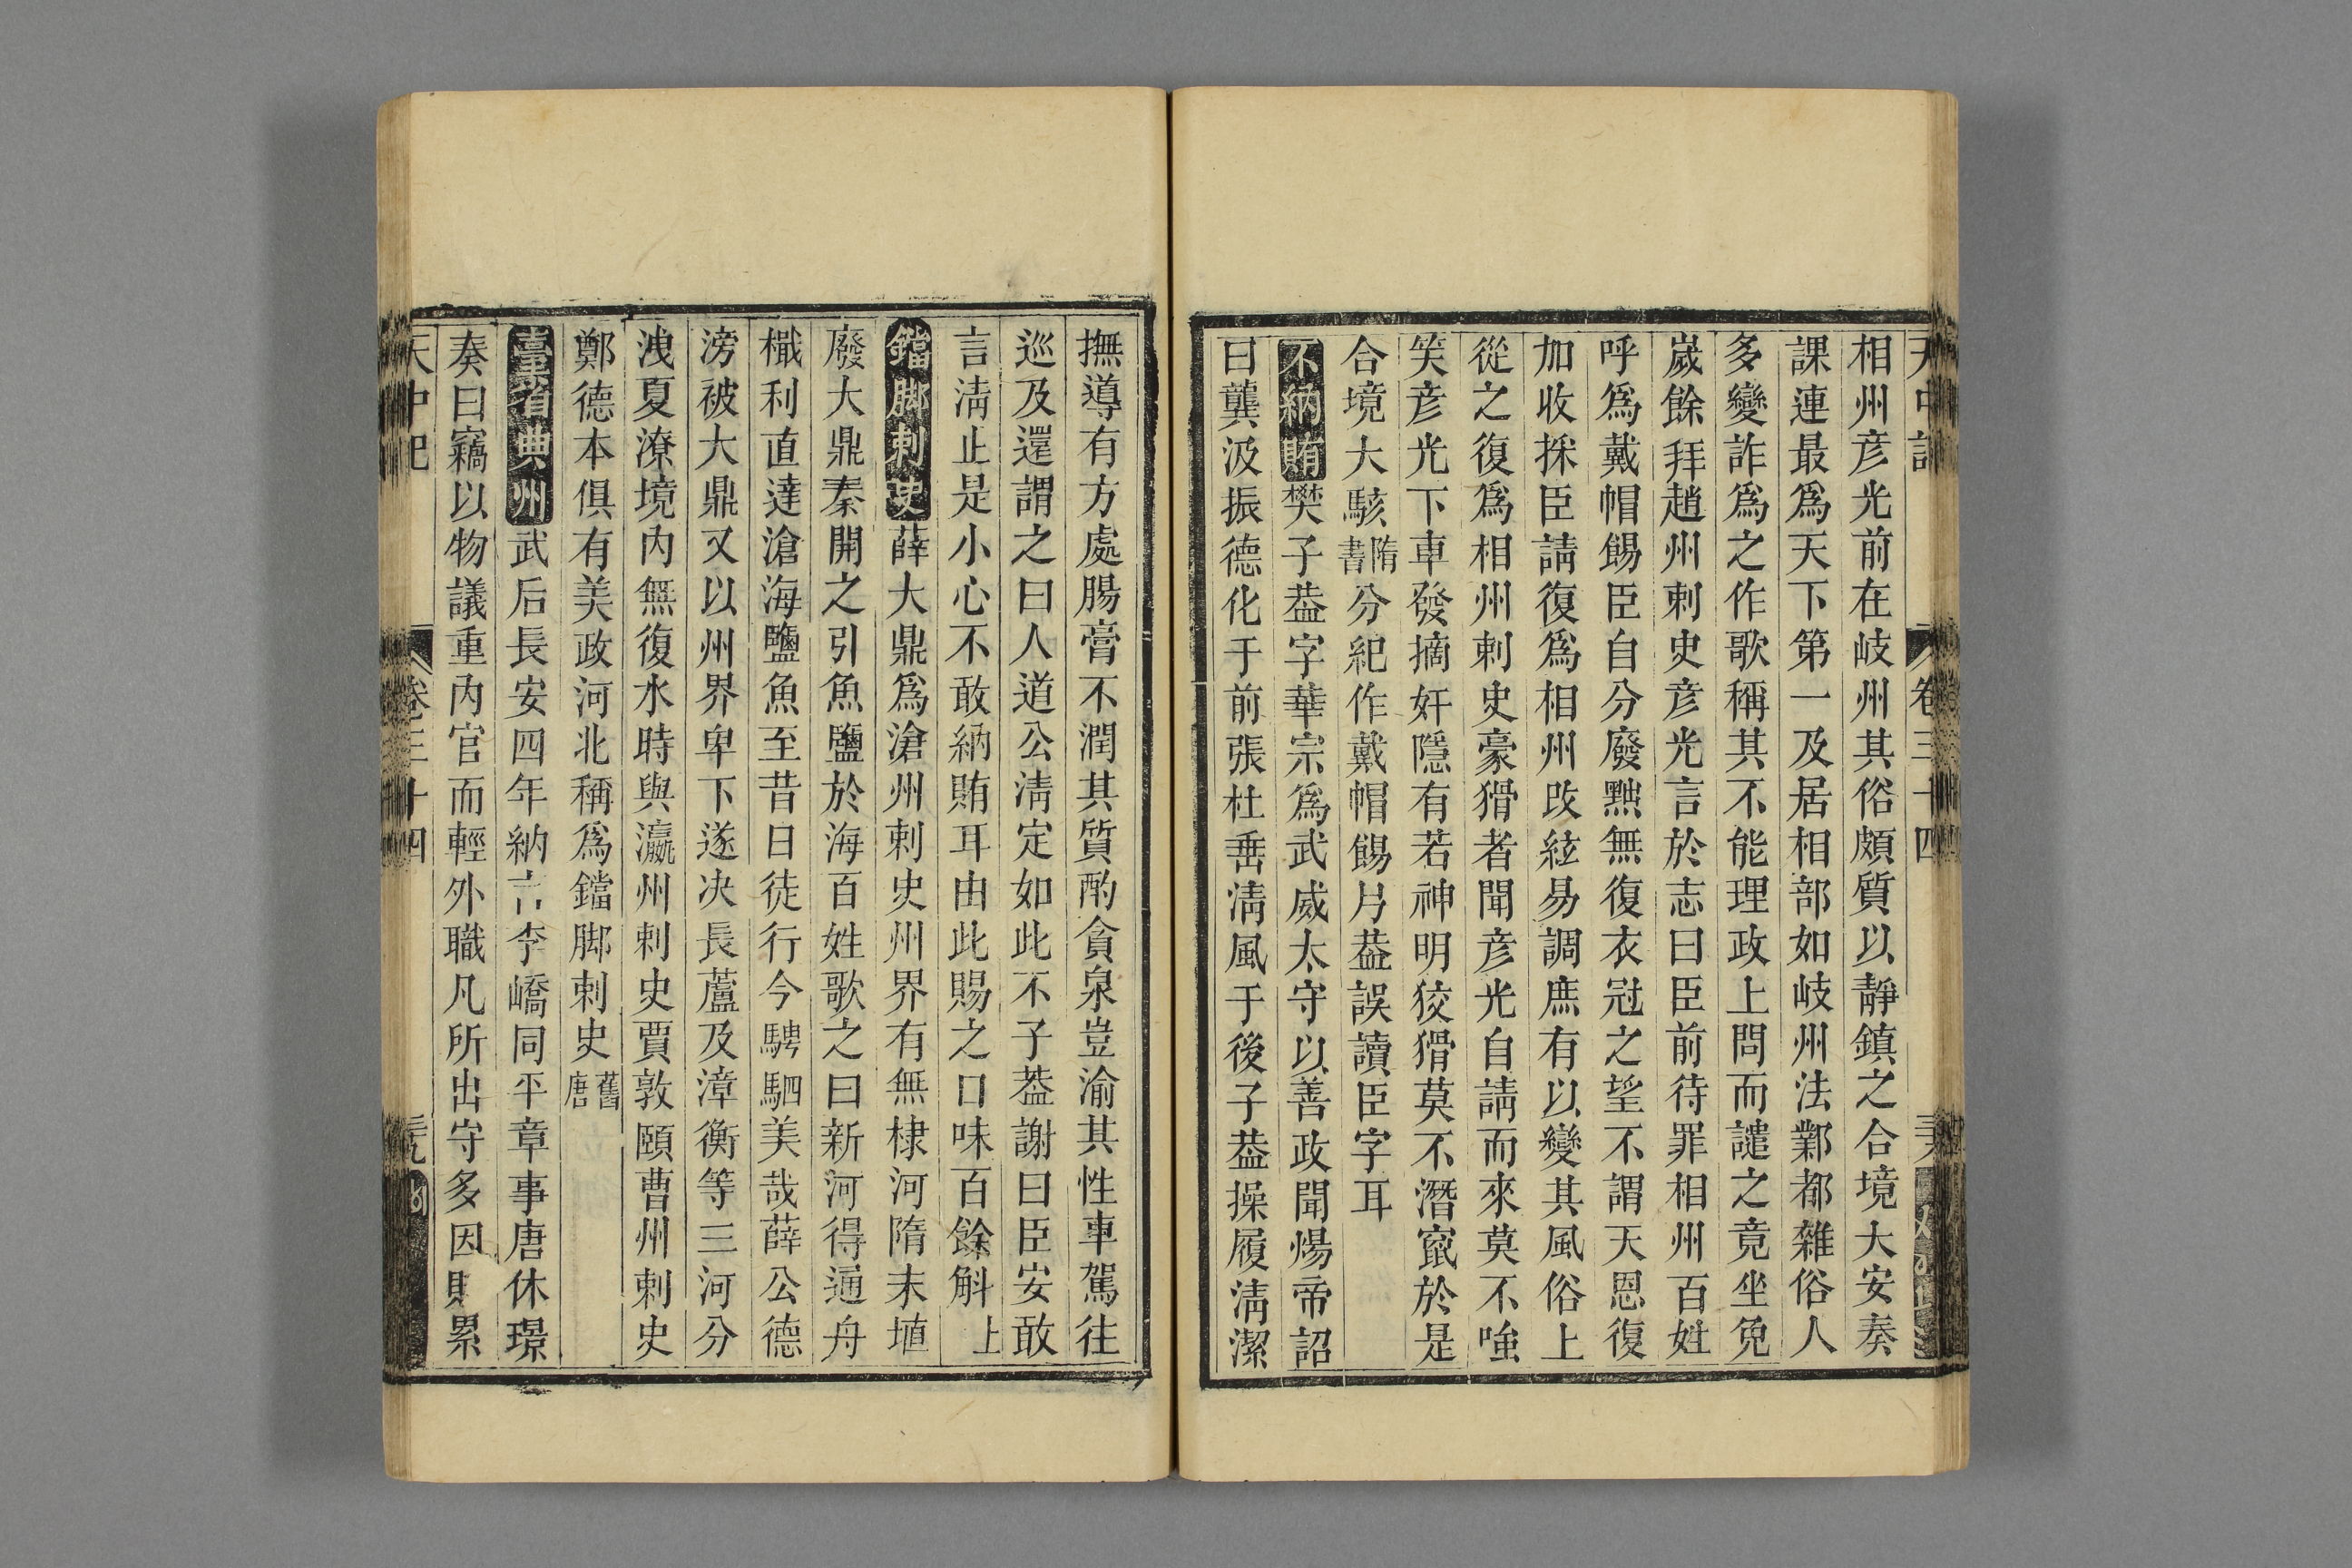 相州彦光前在岐州其俗頗質以靜鎮之合境大安奏
課連最爲天下第一及居相部如岐州法鄴都雜俗人
多變詐爲之作歌稱其不能理政上問而譴之竟坐免
歲餘拜趙州刺史彦光言於志曰臣前待罪相州百姓
呼爲戴帽餳臣自分廢黜無復衣冠之望不謂天恩復
加收採臣請復爲相州改絃易調庶有以變其風俗上
從之復爲相州刺史豪猾者聞彦光自請而來莫不嗤
笑彦光下車發摘奸隱有若神明狡猾莫不潛竄於是
合境大駭隋書分紀作戴帽餳片葢誤讀臣字耳
不納賄樊子葢字華宗爲武威太守以善政聞煬帝詔
曰龔汲振德化于前張杜垂清風于後子葢操履清潔
撫導有方處腸膏不潤其質酌貪泉豈渝其性車駕往
巡及還謂之曰人道公清定如此不子葢謝曰臣安敢
言清止是小心不敢納賄耳由此賜之口味百餘斛上
鐺脚刺史薛大鼎爲滄州刺史州界有無棣河隋末塡
廢大鼎奏開之引魚鹽於海百姓歌之曰新河得通舟
檝利直達滄海鹽魚至昔日徒行今騁駟美哉薛公德
滂被大鼎又以州界卑下遂决長蘆及漳衡等三河分
洩夏潦境内無復水時與瀛州刺史賈敦頤曹州刺史
鄭德本俱有美政河北稱爲鐺脚刺史舊唐
臺省典州武后長安四年納言李嶠同平章事唐休璟
奏曰竊以物議重内官而輕外職凡所出守多因貶累
天中記
卷三十四